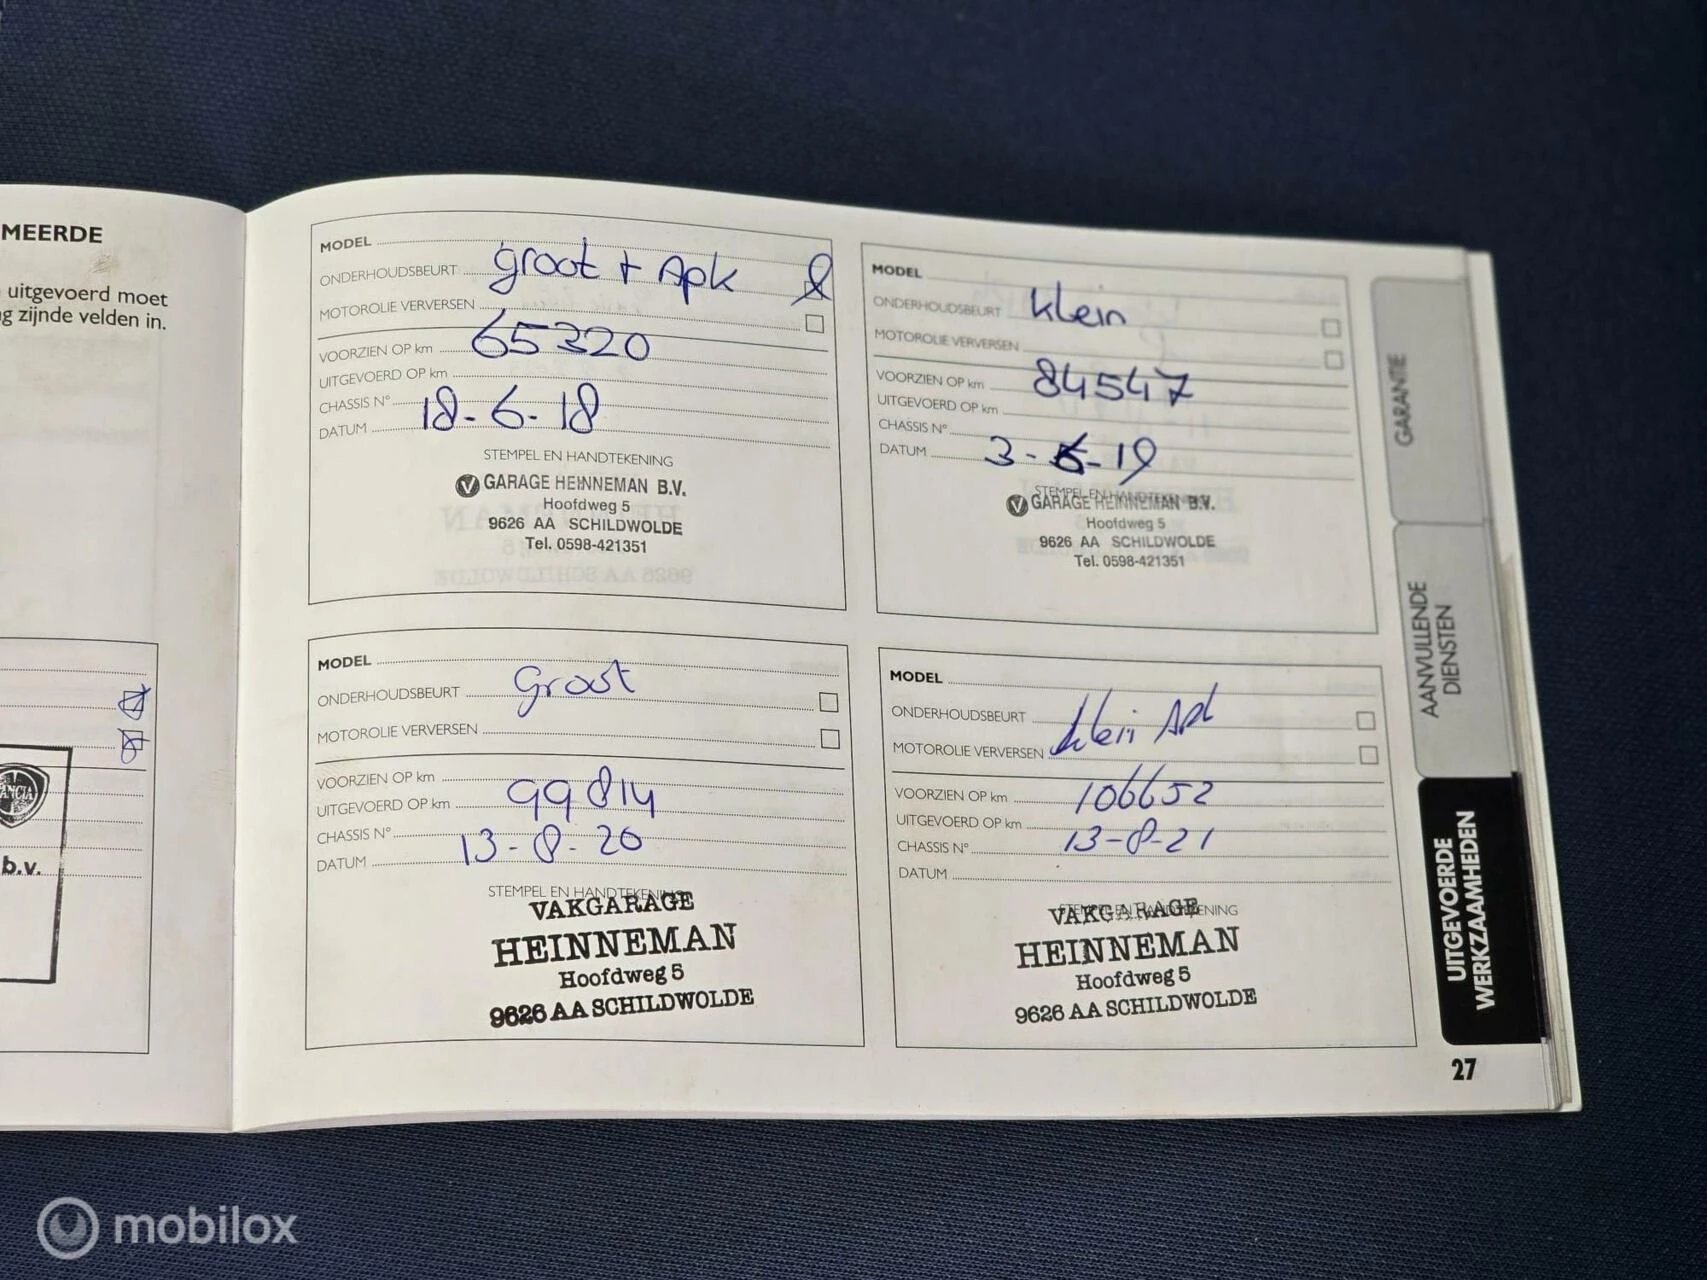 MEERDE
uitgevoerd moet
g zijnde velden in.
LANCIA
b.v.
MODEL
ONDERHOUDSBEURT groot + Apk
MOTOROLIE VERVERSEN
VOORZIEN OP km 65320
UITGEVOERD OP km
CHASSIS N°. 18-6-18
DATUM
STEMPEL EN HANDTEKENING
V GARAGE HEINNEMAN B.V.
Hoofdweg 5
9626 AA SCHILDWOLDE
Tel. 0598-421351
MODEL
ONDERHOUDSBEURT klein
MOTOROLIE VERVERSEN
VOORZIEN OP km 84547
UITGEVOERD OP km
CHASSIS N°.
DATUM 3-6-19
STEMPEL EN HANDTEKENING
V GARAGE HEINNEMAN B.V.
Hoofdweg 5
9626 AA SCHILDWOLDE
Tel. 0598-421351
MODEL
ONDERHOUDSBEURT groot
MOTOROLIE VERVERSEN
VOORZIEN OP km
UITGEVOERD OP km 99814
CHASSIS N°. 13-8-20
DATUM
STEMPEL EN HANDTEKENING
VAKGARAGE
HEINNEMAN
Hoofdweg 5
9626 AA SCHILDWOLDE
MODEL
ONDERHOUDSBEURT klein
MOTOROLIE VERVERSEN
VOORZIEN OP km 106652
UITGEVOERD OP km
CHASSIS N°. 13-8-21
DATUM
STEMPEL EN HANDTEKENING
VAKGARAGE
HEINNEMAN
Hoofdweg 5
9626 AA SCHILDWOLDE
GARANTIE
AANVULLENDE
DIENSTEN
UITGEVOERDE
WERKZAAMHEDEN
27
mobilox